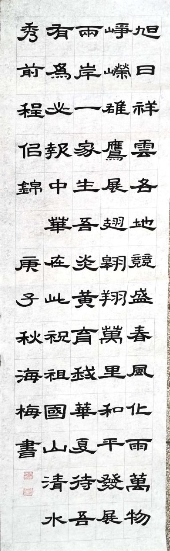 旭日祥雲各地競盛春風化雨萬物
崢嶸雄鷹展翅翱翔萬里和平發展
兩岸一家生吾炎黃育我華夏待吾
有為必報中華在此祝祖國山清水
秀前程佀錦 庚子秋海梅書